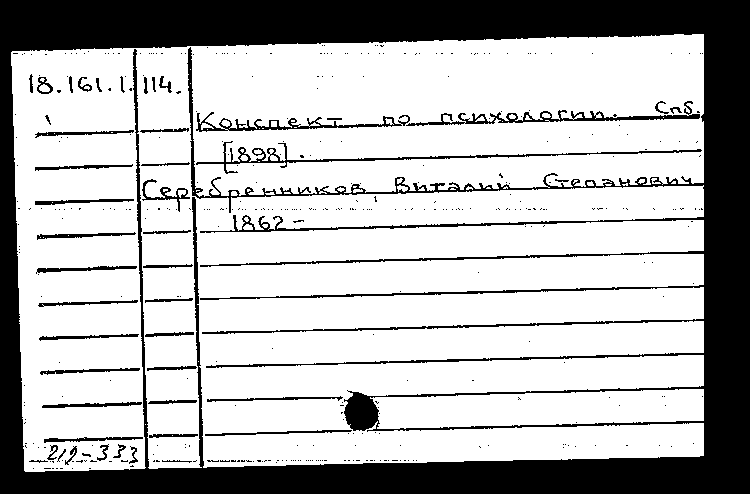 18.161.1.114.
Конспект по психологии. Спб.,
[1898].
Серебренников, Виталий Степанович
1862-
219-333